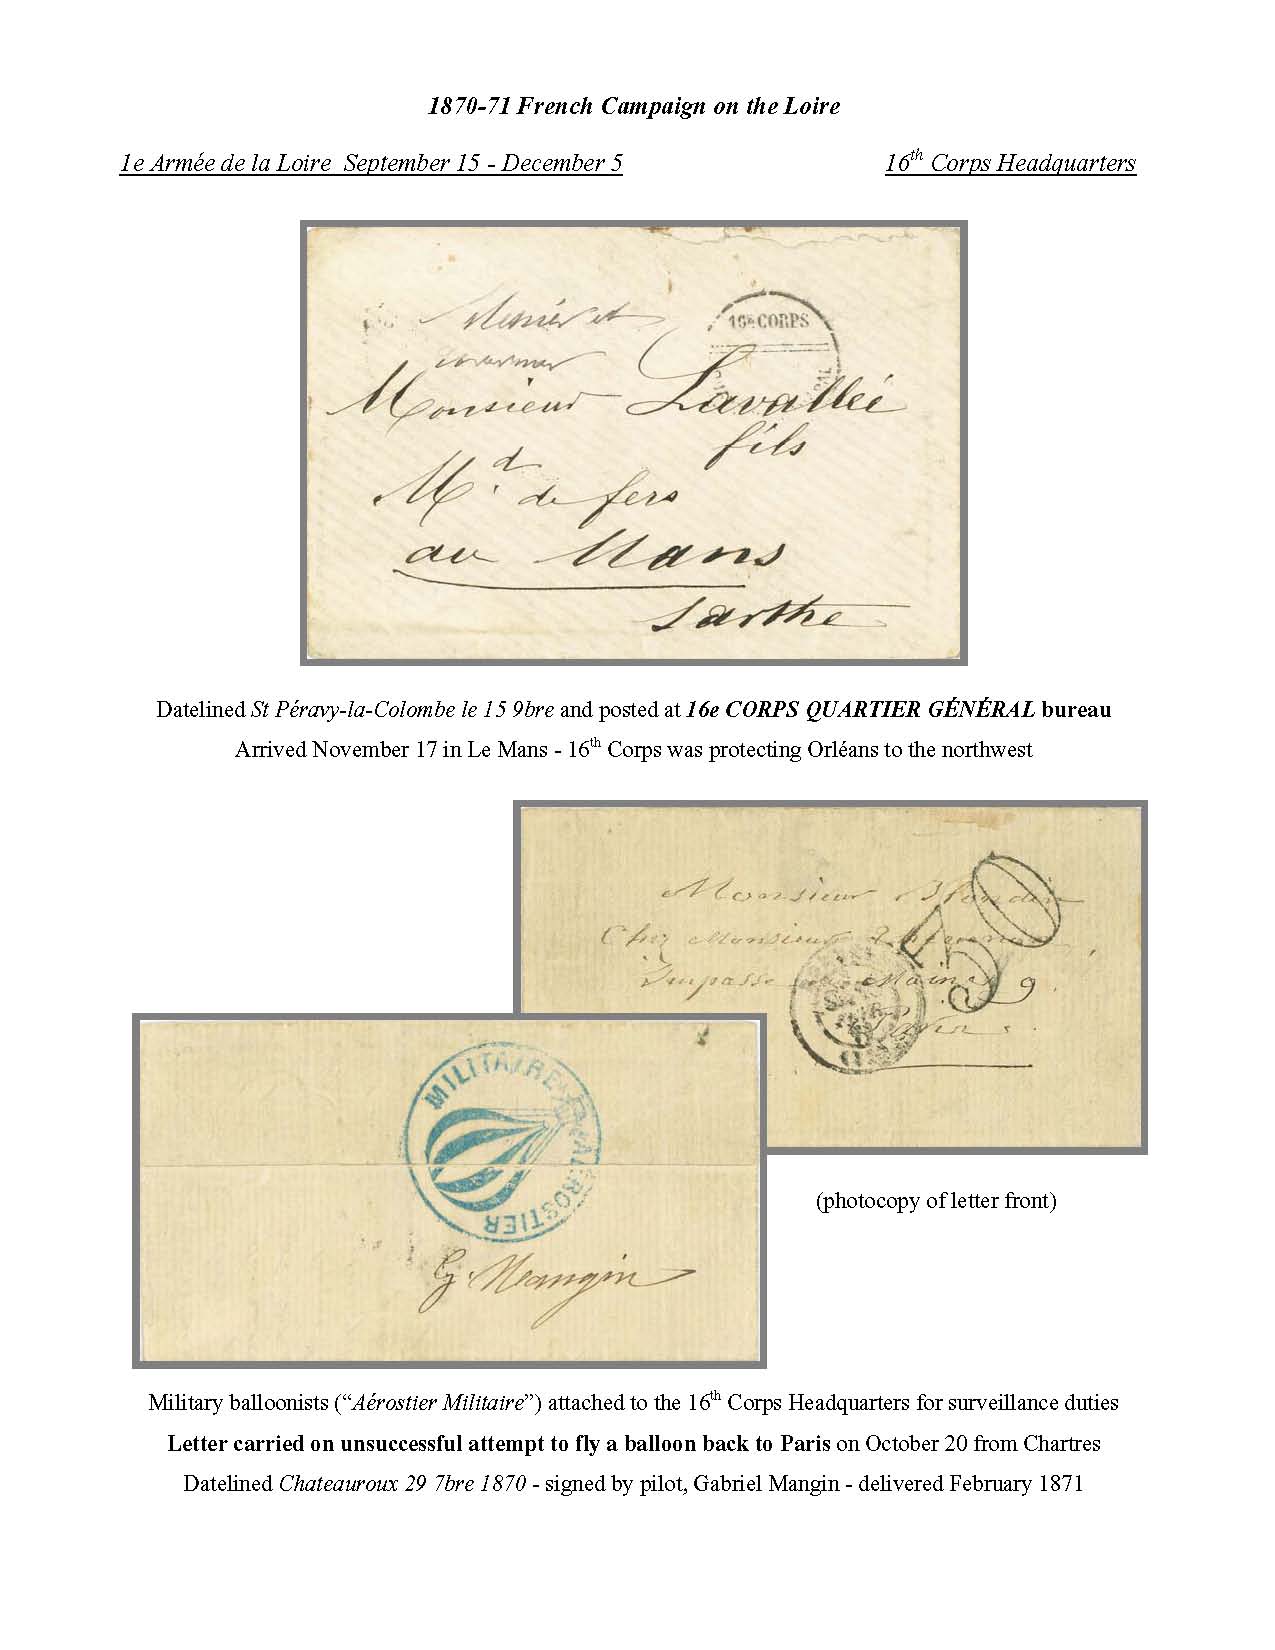 1870-71 French Campaign on the Loire
1e Armée de la Loire September 15 - December 5
16th Corps Headquarters
16e CORPS
Monsieur Lavallée
fils
Md de fers
au Mans
Sarthe
Datelined St Péravy-la-Colombe le 15 9bre and posted at 16e CORPS QUARTIER GÉNÉRAL bureau
Arrived November 17 in Le Mans - 16th Corps was protecting Orléans to the northwest
Monsieur Blondin
Chez Monsieur
Impasse du Maine 9
Paris
30
MILITAIRE AÉROSTIER
G. Mangin
(photocopy of letter front)
Military balloonists (“Aérostier Militaire”) attached to the 16th Corps Headquarters for surveillance duties
Letter carried on unsuccessful attempt to fly a balloon back to Paris on October 20 from Chartres
Datelined Chateauroux 29 7bre 1870 - signed by pilot, Gabriel Mangin - delivered February 1871